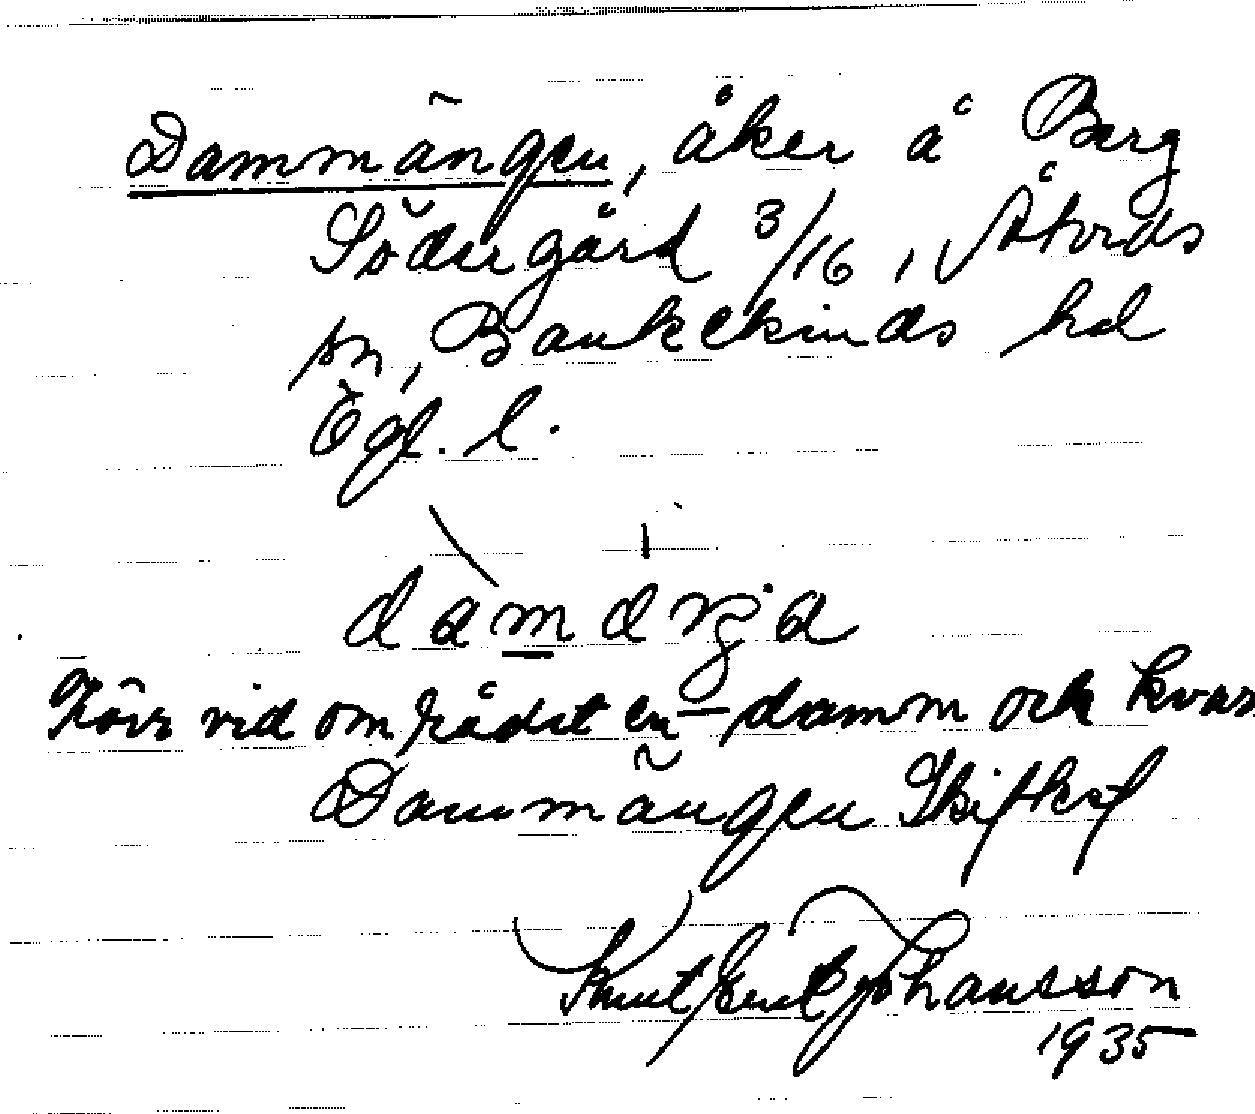 Dammängen, åker å Berg
Södergård 3/16, Åtvids
sn, Bankekinds hd
Ögl. l.
damäŋja
vid området en damm och kvar
Dammängen Skifteskf
Knut Johansson
1935